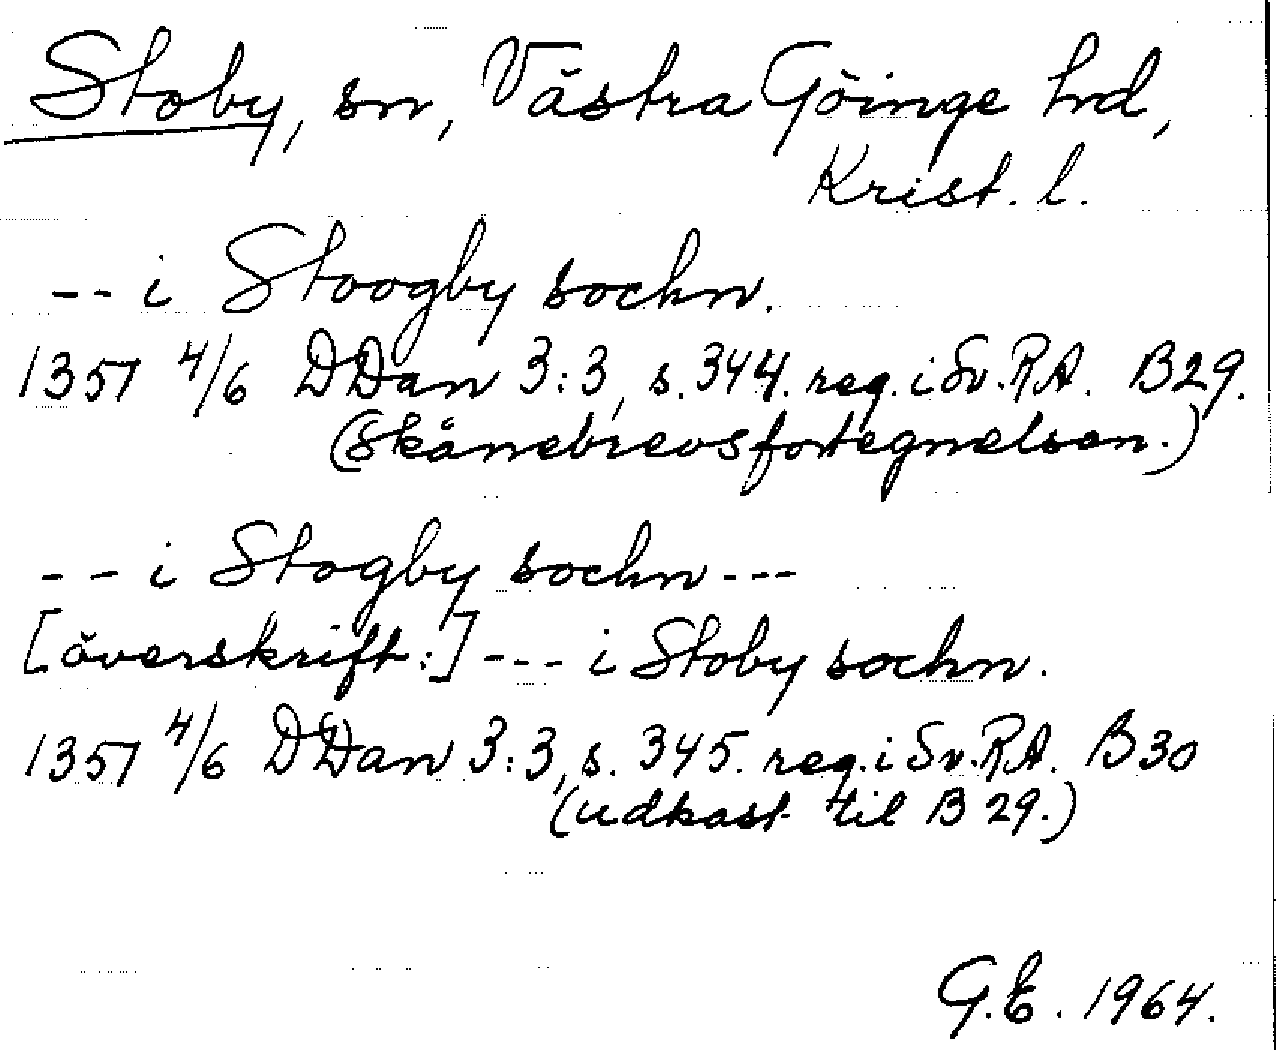 Stoby, sn, Västra Göinge hrd,
Krist. l.
-- i Stoogby sochn.
1357 4/6 DDan 3:3, s. 344. reg. i Sv. RA. B29.
(Skånebrevsfortegnelsen.)
-- i Stogby sochn ---
[överskrift:] --- i Stoby sochn.
1357 4/6 DDan 3:3, s. 345. reg. i Sv. RA. B30
(udkast til B 29.)
G.E. 1964.